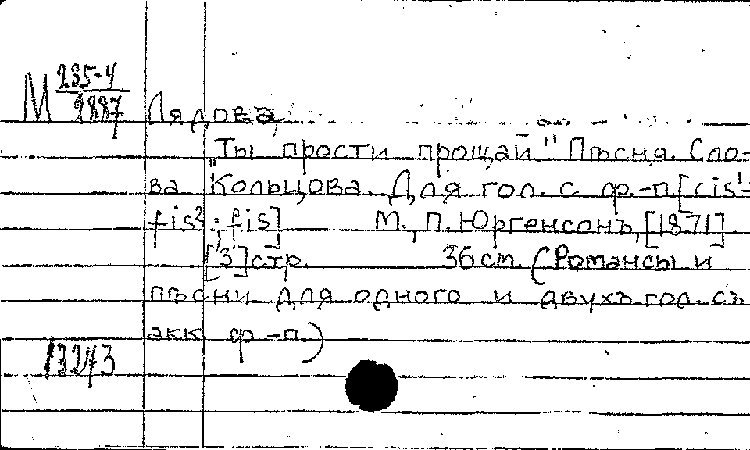 М 235-4
2887
Лядова,
"Ты прости прощай" Пѣсня. Сло-
ва Кольцова. Для гол. с ф.-п. [cis¹-
fis²; fis] М., П. Юргенсонъ, [1871]
[3] стр. 36 cm. (Романсы и
пѣсни для одного и двухъ гол. съ
акк ф-п.)
13273